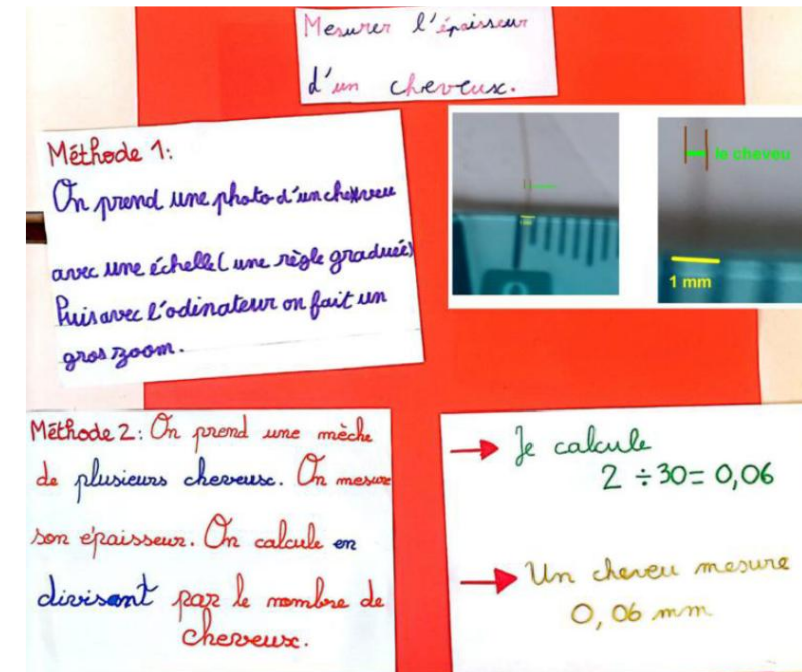 Mesurer l'épaisseur
d'un cheveux.
Méthode 1:
On prend une photo d'un cheveu
avec une échelle (une règle graduée)
Puis avec l'odinateur on fait un
gros zoom.
le cheveu
1 mm
0
Méthode 2: On prend une mèche
de plusieurs cheveux. On mesure
son épaisseur. On calcule en
divisant par le nombre de
cheveux.
→ Je calcule
2 ÷ 30 = 0,06
→ Un cheveu mesure
0,06 mm